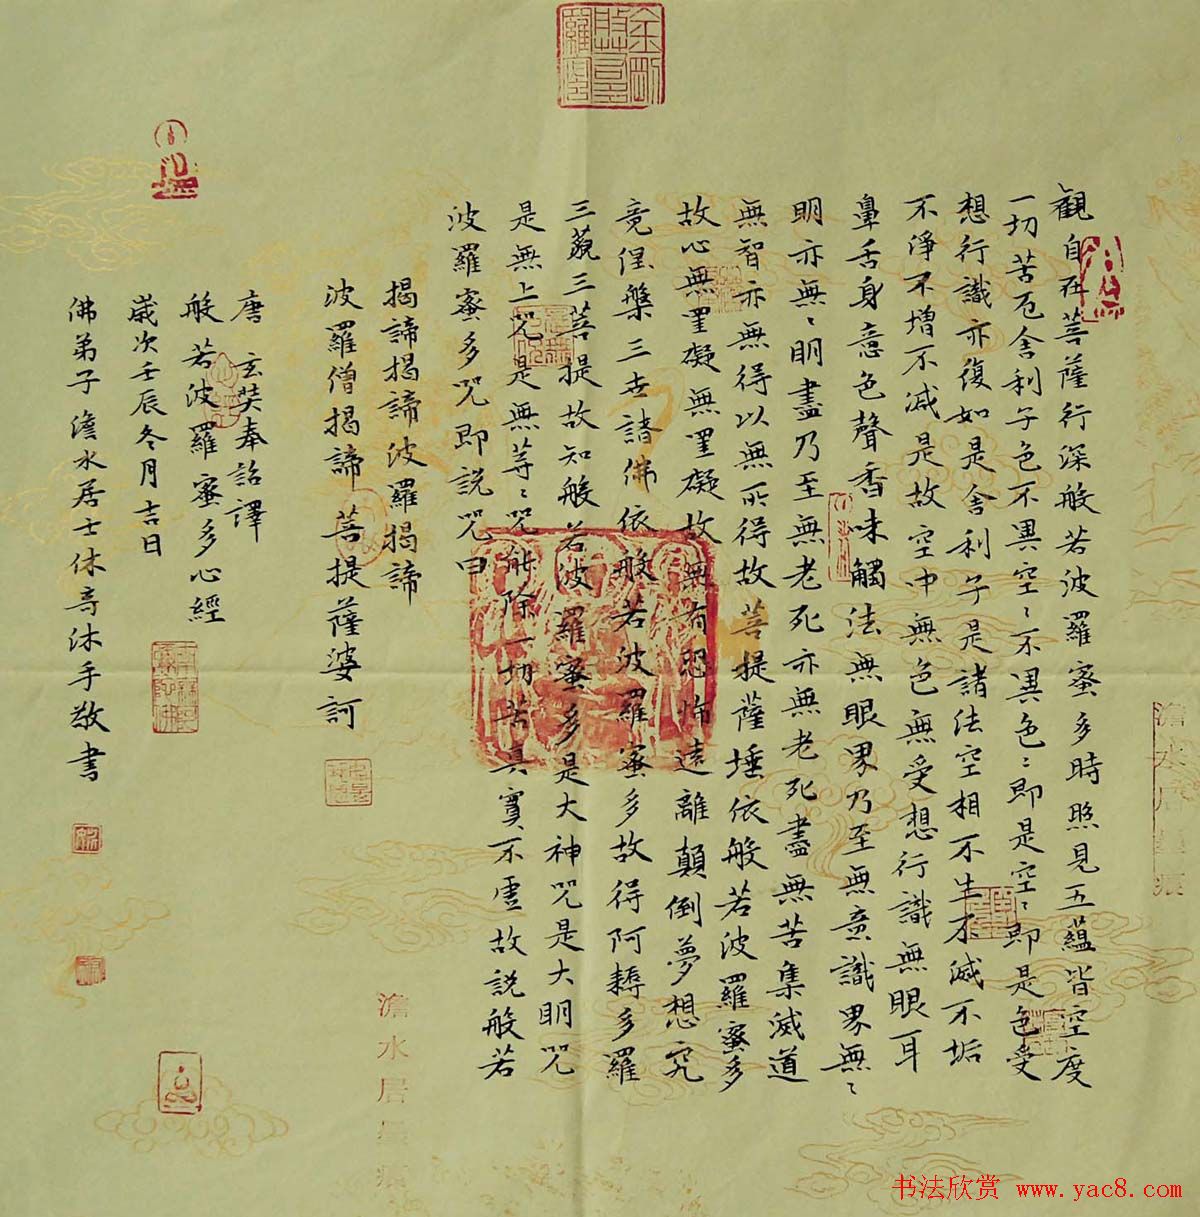 觀自在菩薩行深般若波羅蜜多時照見五蘊皆空度
一切苦厄舍利子色不異空〻不異色〻即是空〻即是色受
想行識亦復如是舍利子是諸法空相不生不滅不垢
不淨不增不減是故空中無色無受想行識無眼耳
鼻舌身意色聲香味觸法無眼界乃至無意識界無〻
明亦無〻明盡乃至無老死亦無老死盡無苦集滅道
無智亦無得以無所得故菩提薩埵依般若波羅蜜多
故心無罣礙無罣礙故無有恐怖遠離顛倒夢想究
竟涅槃三世諸佛依般若波羅蜜多故得阿耨多羅
三藐三菩提故知般若波羅蜜多是大神咒是大明咒
是無上咒是無等〻咒能除一切苦真實不虛故說般若
波羅蜜多咒即說咒曰
揭諦揭諦波羅揭諦
波羅僧揭諦菩提薩婆訶
唐玄奘奉詔譯
般若波羅蜜多心經
歲次壬辰冬月吉日
佛弟子澹水居士休奇沐手敬書
金剛般若波羅蜜
澹水居墨痕
澹水居墨痕
书法欣赏 www.yac8.com